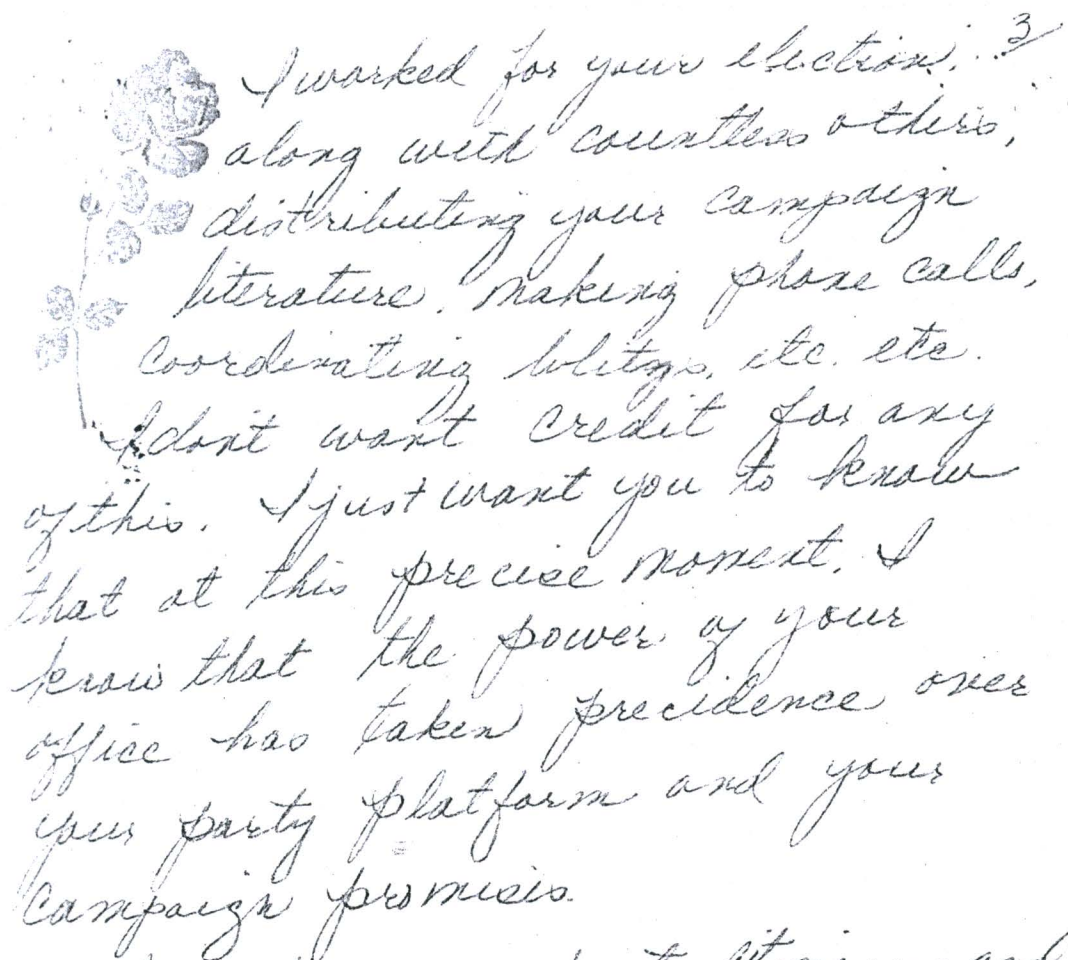 3/
I worked for your election,
along with countless others,
distributing your campaign
literature, making phone calls,
coordinating blitzs, etc. etc.
I dont want credit for any
of this. I just want you to know
that at this precise moment, I
know that the power of your
office has taken precidence over
your party platform and your
campaign promises.
and